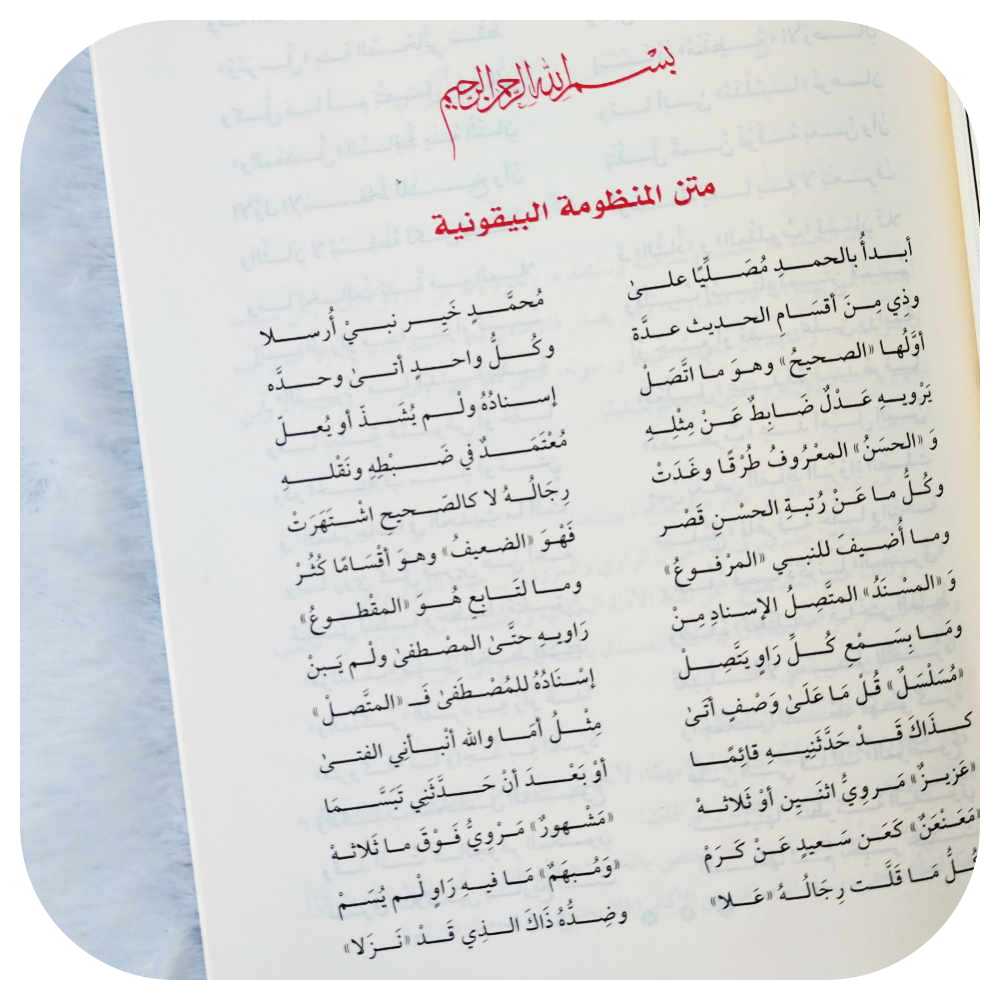 بسم الله الرحمن الرحيم
متن المنظومة البيقونية
أبـدأُ بالحمـدِ مُصَلِّيًا علـىٰ مُحمَّـدٍ خَيِـر نبـيْ أُرسـلا
وذِي مِنَ أقسَـامِ الحـديث عـدَّة وكُـلُّ واحـدٍ أتـىٰ وحـدَّه
أوَّلُها «الصحيحُ» وهـوَ مـا اتَّصَـلْ إسـنادُهُ ولْـم يُشَـذّ أو يُعـلّ
يَرْويـهِ عَـدْلٌ ضَـابِطٌ عَـنْ مِثْلِـهِ مُعْتَمَـدٌ في ضَـبْطِهِ ونَقْلـهِ
وَ «الحسَنُ» المعْرُوفُ طُرْقًا وغَدَتْ رِجَالُـهُ لا كالصّـحيحِ اشْـتَهَرَتْ
وكُلُّ ما عَـنْ رُتبـةِ الحسْـنِ قَصْـر فَهْوَ «الضعيفُ» وهوَ أقْسَامًا كُثُـرْ
ومـا أُضـيفَ للنبـي «المرْفـوعُ» ومـا لتَـابعِ هُـوَ «المقْطـوعُ»
وَ «المسْنَدُ» المتَّصِلُ الإسـنادِ مِـنْ رَاويـهِ حتَّـىٰ المصْطفىٰ ولْـم يَـبنْ
ومَـا بِسَـمْعِ كُـلِّ رَاوٍ يَتَّصِـلْ إسْـنَادُهُ للمُصْـطَفَىٰ فَـ «المتَّصـلْ»
«مُسَلْسَلٌ» قُلْ مَا عَلَىٰ وَصْفٍ أتَىٰ مِثْـلُ أمَـا والله أنْبـأنِي الفتـىٰ
كـذَاكَ قَـدْ حَدَّثَنِيـهِ قائِمًـا أوْ بَعْـدَ أنْ حَـدَّثَنِي تَبَسَّـمَا
«عَزيزٌ» مَـروِيُّ اثنَـيِن أوْ ثَلاثـهْ «مَشْـهورٌ» مَـرْوِيُّ فَـوْقَ مـا ثَلاثـهْ
«مَعَنْعَنٌ» كَعَن سَـعيدٍ عَـنْ كَـرَمْ «وَمُـبهَمٌ» مَـا فيـهِ رَاوٍ لْـم يُسَـمْ
كُلُّ مَـا قَلَّـت رِجَالُـهُ «عَـلا» وضِـدُّهُ ذَاكَ الـذِي قَـدْ «نَـزَلا»